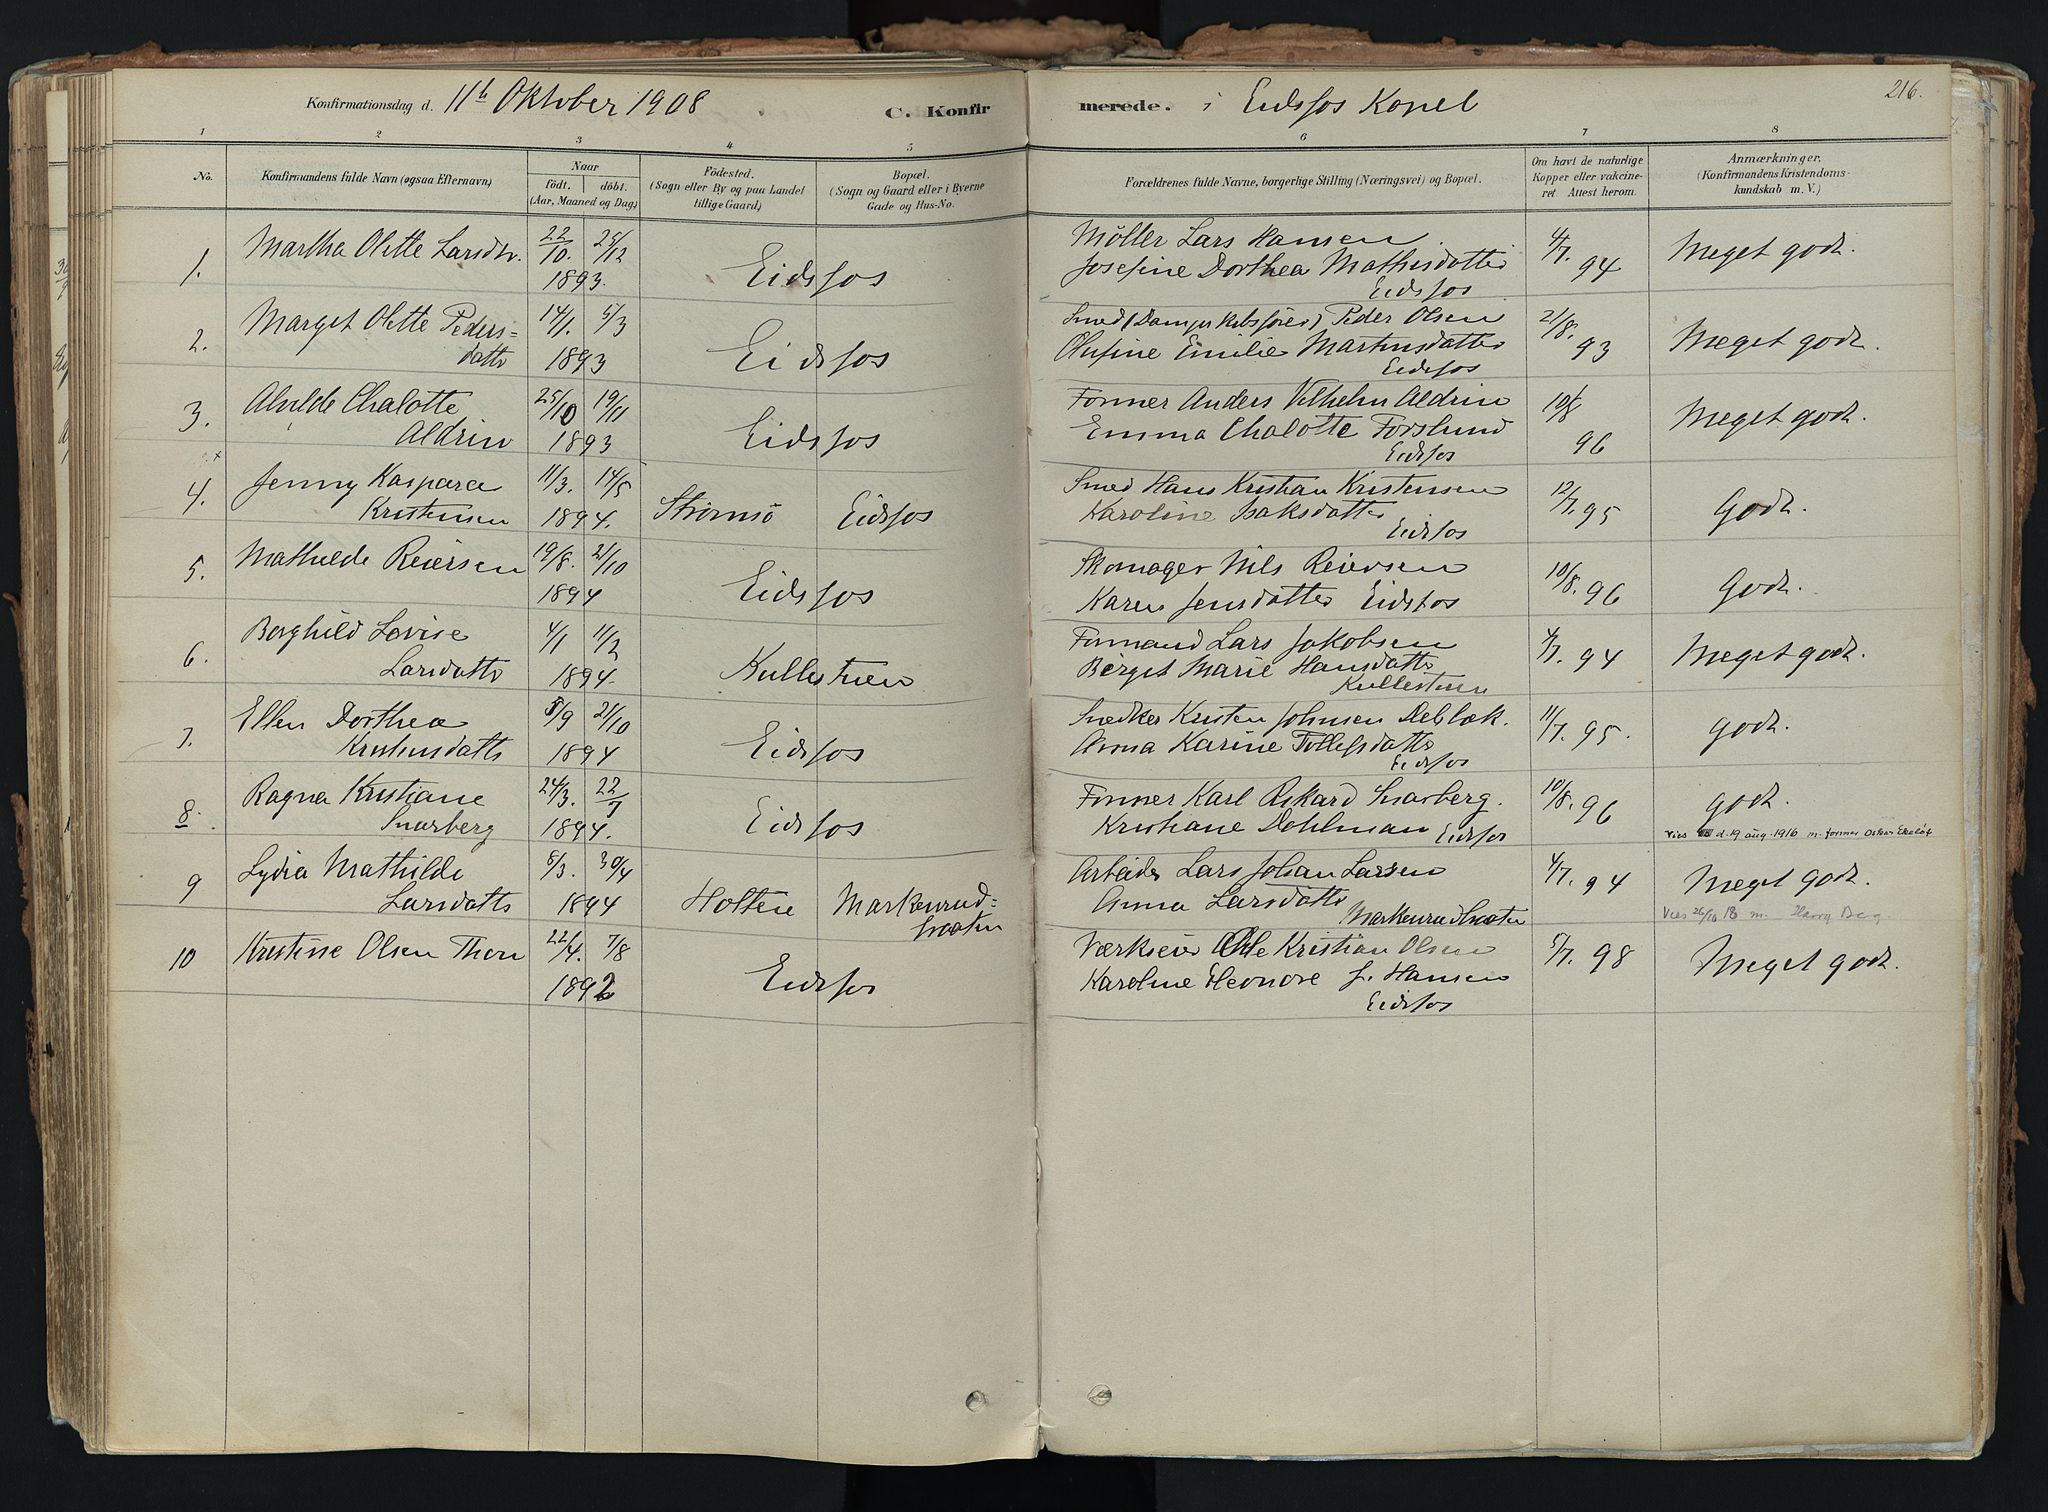 Konfirmationsdag d. 11h Oktober 1908 C. Konfirmerede. i Eidsfos Kapel 216.
1 2 3 4 5 6 7 8
No. Konfirmandens fulde Navn (ogsaa Efternavn) Naar födt. döbt. (Aar, Maaned og Dag) Födested. (Sogn eller By og paa Landet tillige Gaard) Bopæl. (Sogn og Gaard eller i Byerne Gade og Hus-No. Forældrenes fulde Navne, borgerlige Stilling (Næringsvei) og Bopæl. Om havt de naturlige Kopper eller vakcineret Attest herom. Anmærkninger. (Konfirmandens Kristendomskundskab m. V.)
1. Martha Olette Larsdtr. 22/10. 25/12 1893. Eidsfos Möller Lars Hansen 4/7. 94 Meget godt.
Josefine Dorthea Mathisdatter
Eidsfos
2. Marget Olette Peders= 14/1. 5/3 Eidsfos Smed (Dampskibsfører) Peder Olsen 21/8. 93 Meget godt.
datter 1893 Olufine Emilie Martinsdatter
Eidsfos
3. Alvilde Chalotte 25/10 19/11 Eidsfos Former Anders Vilhelm Aldrin 10/8 96 Meget godt.
Aldrin 1893 Emma Chalotte Forslund
Eidsfos
4. Jenny Kaspara 11/3. 14/5 Strømsö Eidsfos Smed Hans Kristian Kristensen 12/7. 95 Godt.
Kristensen 1894. Karoline Isaksdatter
Eidsfos
5. Mathilde Reiersen 19/8. 21/10 1894 Eidsfos Skomager Nils Reiersen 10/8. 96 Godt.
Karen Jensdatter Eidsfos
6. Borghild Lovise 4/1 11/2 Kullestuen Formand Lars Jakobsen 4/7. 94 Meget godt.
Larsdatter 1894. Berget Marie Hansdatter
Kullestuen
7. Ellen Dorthea 5/9 21/10 Eidsfos Snedker Kristen Johnsen 11/7. 95. godt.
Kristensdatter 1894 Anna Karine Tollefsdatter
Eidsfos
8. Ragna Kristiane 24/3. 22/7 Eidsfos Former Karl Rikard Snarberg. 10/8. 96 godt.
Snarberg 1894. Kristiane Dohlman Eidsfos Vies d. 19 aug. 1916 m. former Oskar
9 Lydia Mathilde 8/3. 30/4 Holtene Markerud= Arbeider Lars Johan Larsen 4/7. 94 Meget godt.
Larsdatter 1894 Anna Larsdatter Vies 26/10 18 m. Harry Berg
10 Kristine Olsen Thon 22/4. 7/8 Eidsfos Værkseier Ole Kristian Olsen 5/7. 98 Meget godt.
1892 Karoline Eleonore f. Hansen
Eidsfos